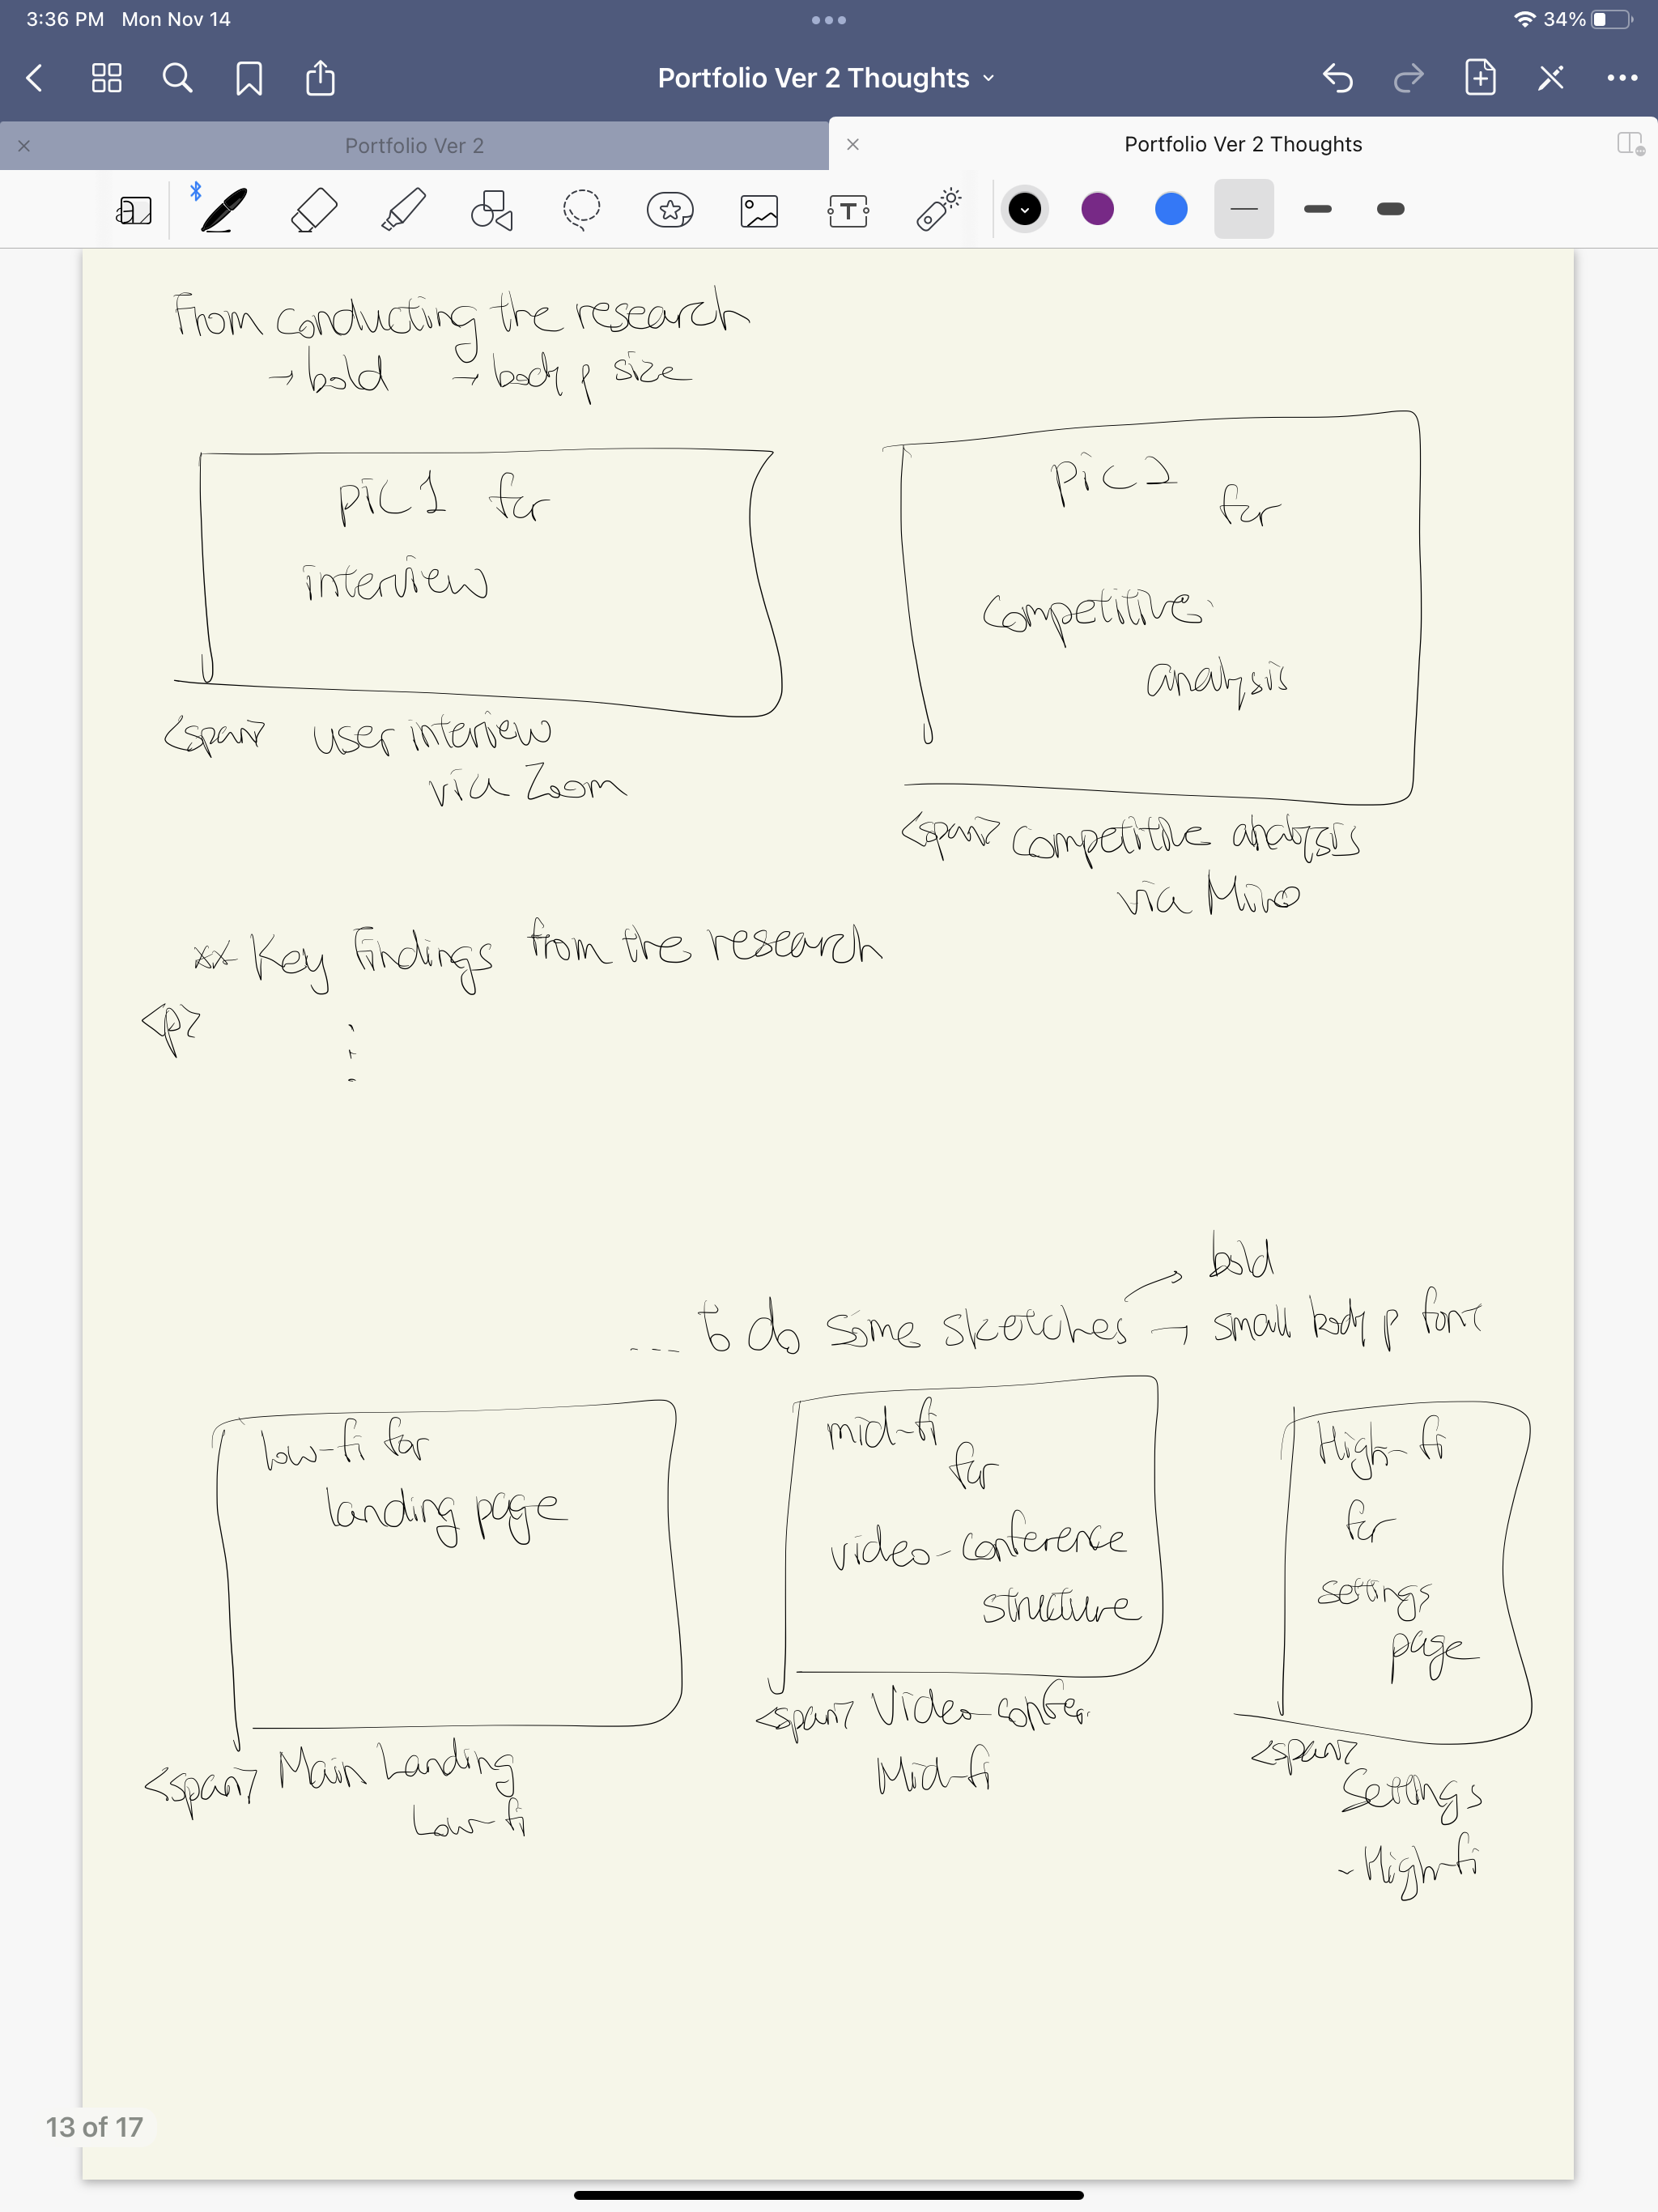 3:36 PM Mon Nov 14
34%
Portfolio Ver 2 Thoughts
Portfolio Ver 2
Portfolio Ver 2 Thoughts
From conducting the research
→ bold → body p size
pic1 for
interview
<span> user interview
via Zoom
pic2
for
competitive
analysis
<span> competitive analysis
via Miro
** Key Findings from the research
<p>
⋮
bold
.... to do some sketches → small body p font
low-fi for
landing page
<span> Main Landing
Low-fi
mid-fi
for
video-conference
structure
<span> Video-confe.
Mid-fi
High-fi
for
settings
page
<span>
Settings
- High-fi
13 of 17